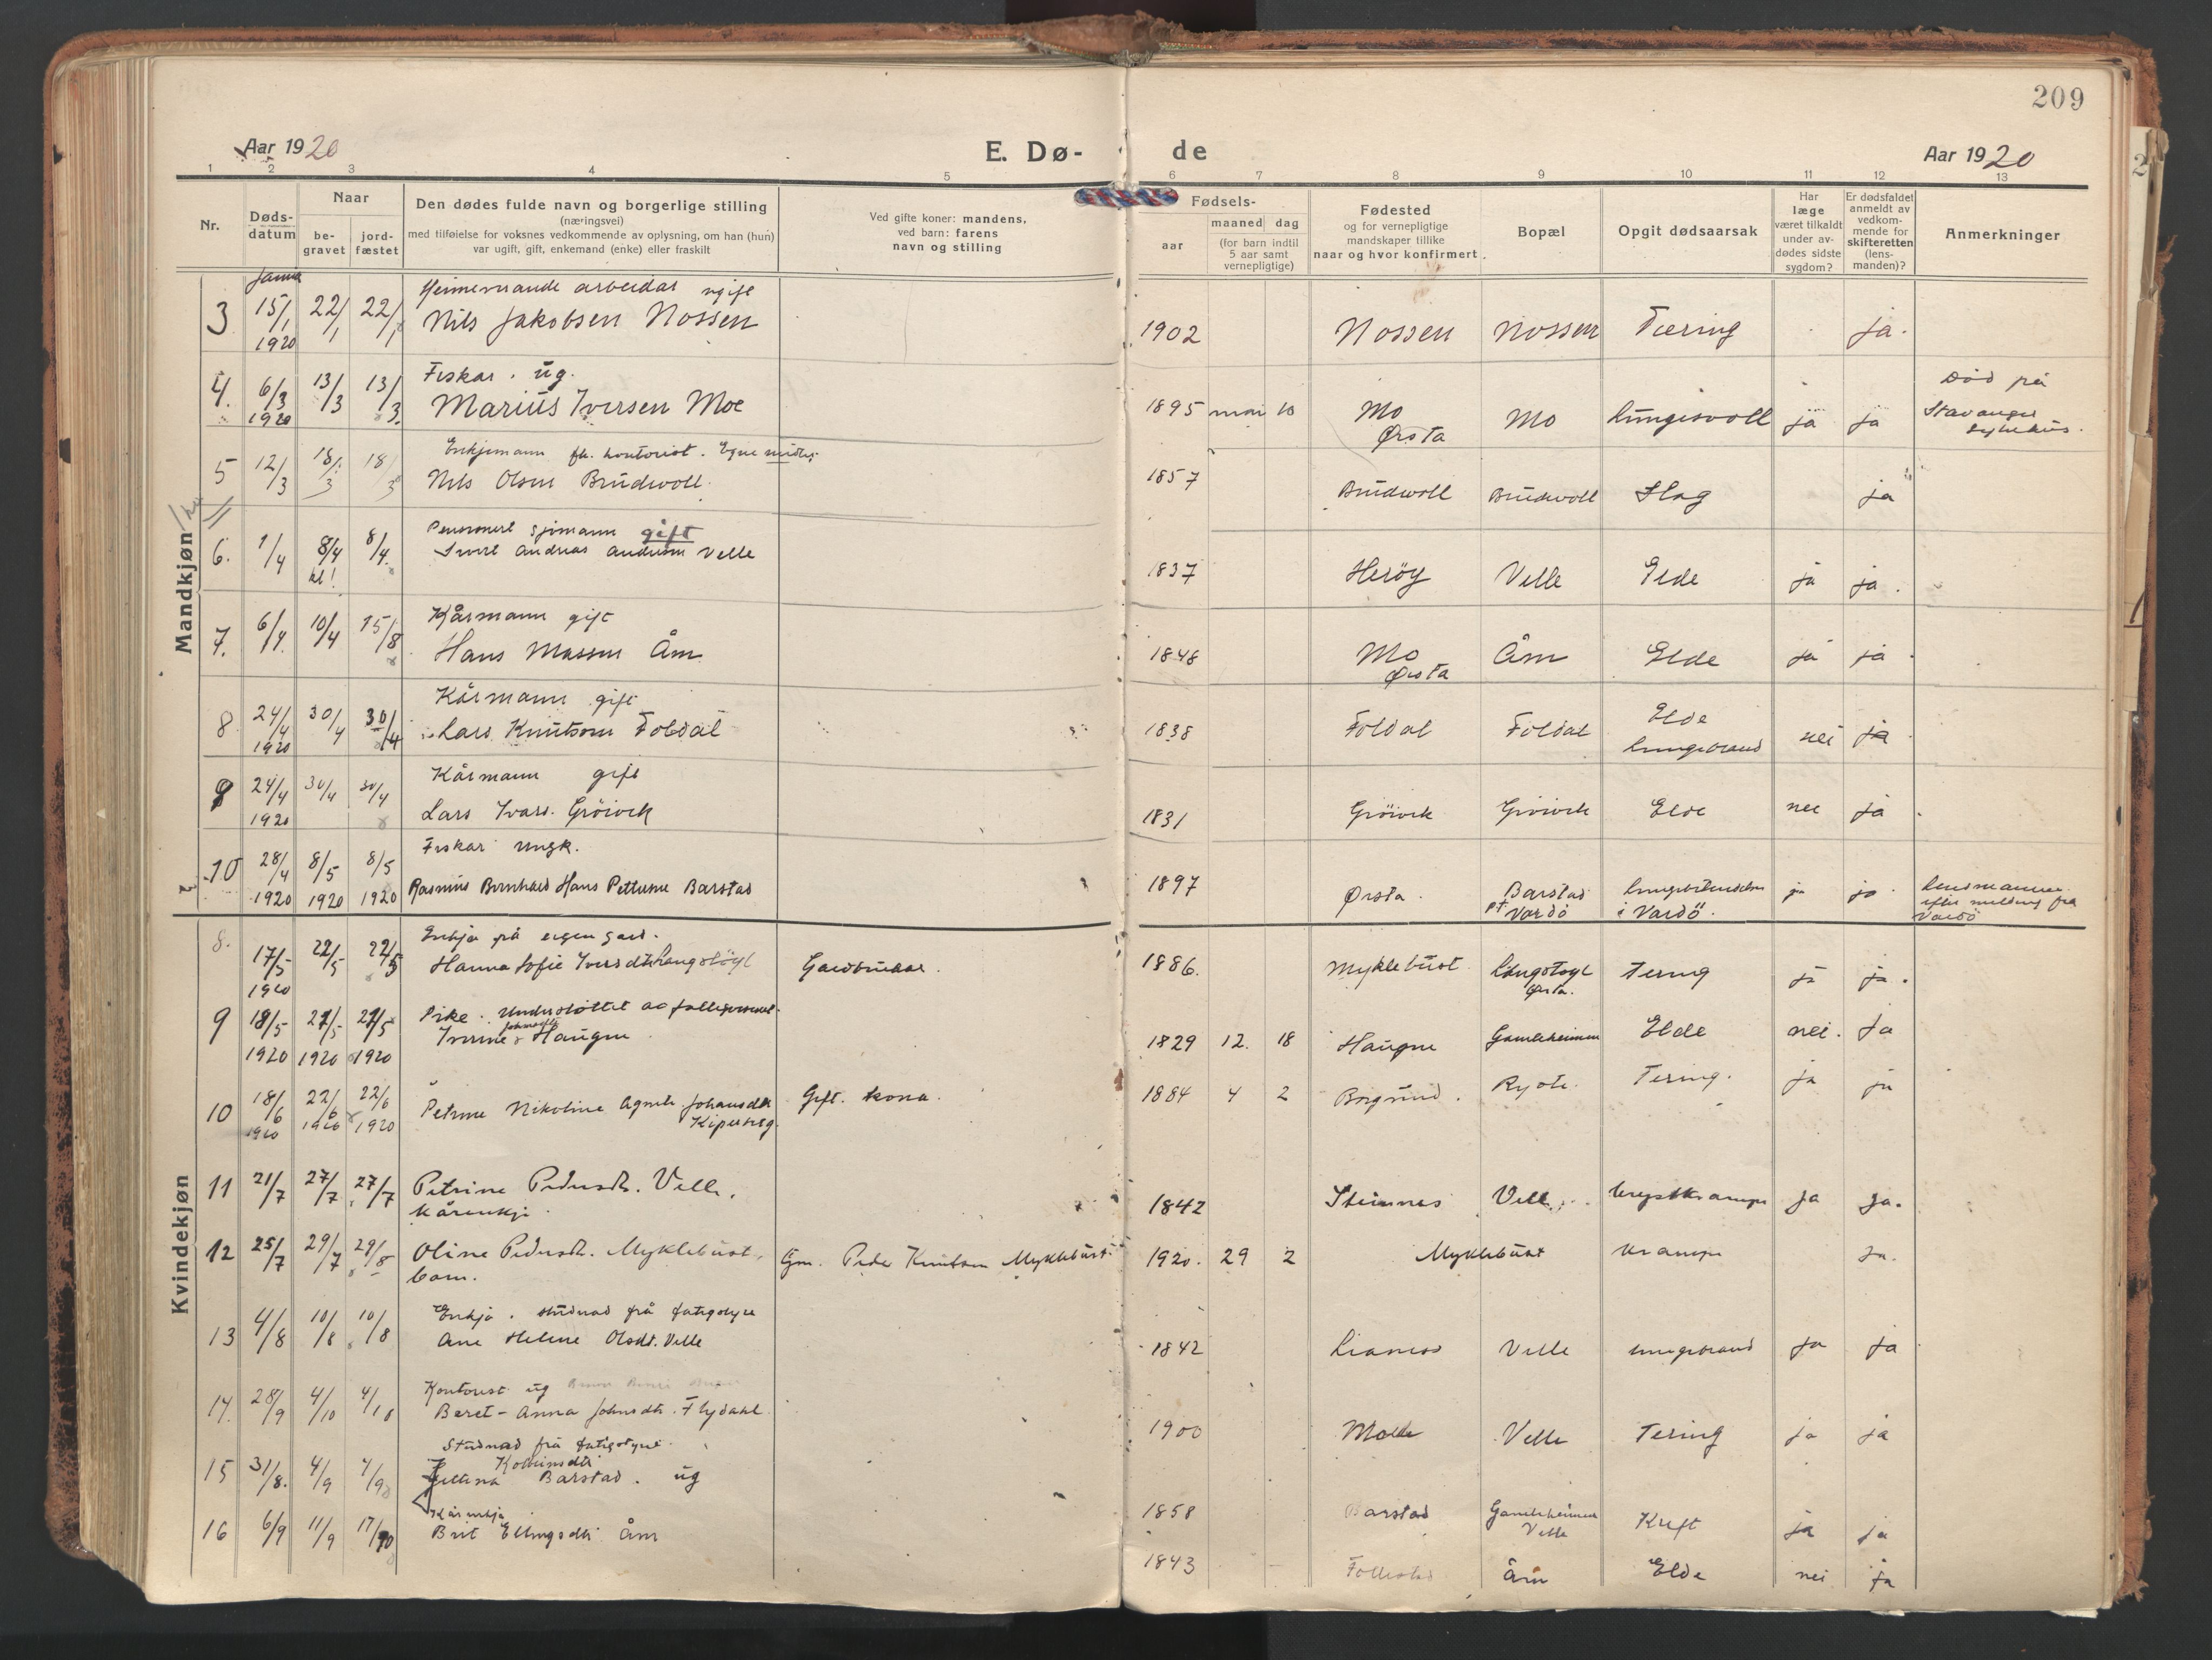 209
Aar 1920
E. Dø-
de
Aar 1920
1 2 3 4 5 6 7 8 9 10 11 12 13
Nr.
Døds-
datum
Naar
be-
gravet
jord-
fæstet
Den dødes fulde navn og borgerlige stilling
(næringsvei)
med tilføielse for voksnes vedkommende av oplysning, om han (hun)
var ugift, gift, enkemand (enke) eller fraskilt
Ved gifte koner: mandens,
ved barn: farens
navn og stilling
Fødsels-
aar
maaned dag
(for barn indtil
5 aar samt
vernepligtige)
Fødested
og for vernepligtige
mandskaper tillike
naar og hvor konfirmert
Bopæl
Opgit dødsaarsak
Har
læge
været tilkaldt
under av-
dødes sidste
sygdom?
Er dødsfaldet
anmeldt av
vedkom-
mende for
skifteretten
(lens-
manden)?
Anmerkninger
Mandkjøn
3 15/1 1920 22/1 22/1 arbeidar ugift
Nils Jakobsen Nossen 1902 Nossen Nossen Tæring ja.
4. 6/3 1920 13/3 13/3 Fiskar. ug.
Marius Iversen Moe 1895 mai 10 Mo Ørsta Mo ja ja Død på
Stavanger
sykehus.
5 12/3 18/3 18/3 Enkjemann fh. kontorist. Egne midler
Nils Olsen Brudwoll 1857 Brudwoll Brudwoll Slag ja
6. 1/4 8/4 8/4 gift
Andreas Velle 1837 Herøy Velle Elde ja ja.
7. 6/4 10/4 15/8 Kårmann gift
Hans Massen Åm 1848 Mo Ørsta Åm Elde ja ja
8 24/4 1920 30/4 30/4 Kårmann gift
Lars Knutson Foldal 1838 Foldal Foldal Elde
lungebrand nei ja
9 24/4 1920 30/4 30/4 Kårmann gift
Lars Ivars. Gröivik 1831 Gröivik Gröivik Elde nei ja
10 28/4 1920 8/5 1920 8/5 1920 Fiskar ungk.
Rasmus Bernhard Hans Petterson Barstad 1897 Ørsta. Barstad
pt Vardø
i Vardö. ja ja lensmannen
efter melding fra
Vardö
Kvindekjøn
8. 17/5 1920 22/5 22/5 Enkja på eigen gard.
Hanna Sofie Iversdtr Langstöyl Gardbrukar. 1886. Myklebust Langstöyl
Ørsta. Tering ja ja.
9 18/5 1920 27/5 1920 27/5 1920 Pike. Understöttet av
Iverine Johnsdtr Haugen 1829 12. 18 Haugen Gamleheimen Elde nei. Ja
10 18/6 1920 22/6 1920 22/6 1920 Petrine Nikoline Agnete Johansdtr
Gift. kona. 1884 4 2 Borgund. Tering. ja ja
11 21/7 27/7 27/7 Petrine Pedersdtr. Velle.
kårenkje 1842 Steinnes Velle. brystkrampe ja ja.
12 25/7 29/7 29/8 Oline Pedersdtr. Myklebust,
barn. Gm. Peder Knutsen Myklebust 1920. 29 2 Myklebust krampe Ja.
13 4/8 10/8 10/8 Enkja. studnad frå fatigstyre
Ane Helene Olsdt. Velle 1842 Velle lungebrand ja ja
14. 28/9 4/10 4/10 Kontorist ug
Beret-Anna Johnsdtr. Flydahl 1900 Molde Velle Tering ja ja
15 31/8. 4/9 4/9 Studnad frå fatigstyre.
Kolbeinsdtr
Jettina Barstad. ug 1858 Barstad Gamleheimen
Velle Kreft ja ja
16 6/9 11/9 17/10 Kårenkja
Brit Ellingsdtr Åm 1843 Follestad Åm Elde nei ja